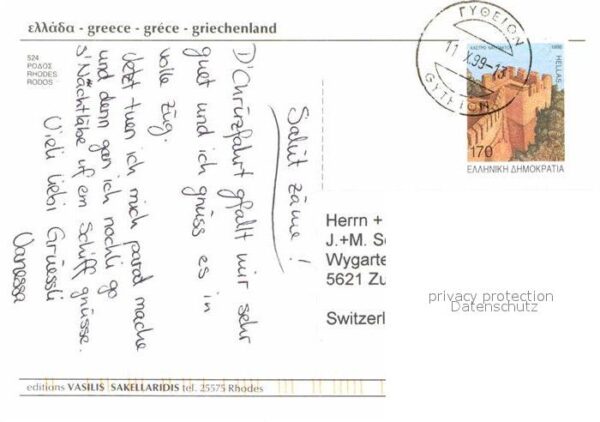 ελλάδα - greece - gréce - griechenland
524
ΡΟΔΟΣ
RHODES
RODOS
Salüt zäme!
D'Chrüzfahrt gfallt mir sehr
guet und ich gnüss es in
volle Züg.
Jetzt tuen ich mich parat mache
und denn gan ich nachli go
s'Nachtläbe uf em Schiff gnüsse.
Vieli liebi Grüessli
Vanessa
ΓΥΘΕΙΟΝ
11.X.99-13
GYTEION
HELLAS
170
ΕΛΛΗΝΙΚΗ ΔΗΜΟΚΡΑΤΙΑ
Herrn +
J.+M. S
Wygarte
5621 Zu
Switzerl
privacy protection
Datenschutz
editions VASILIS SAKELLARIDIS tel. 25575 Rhodes